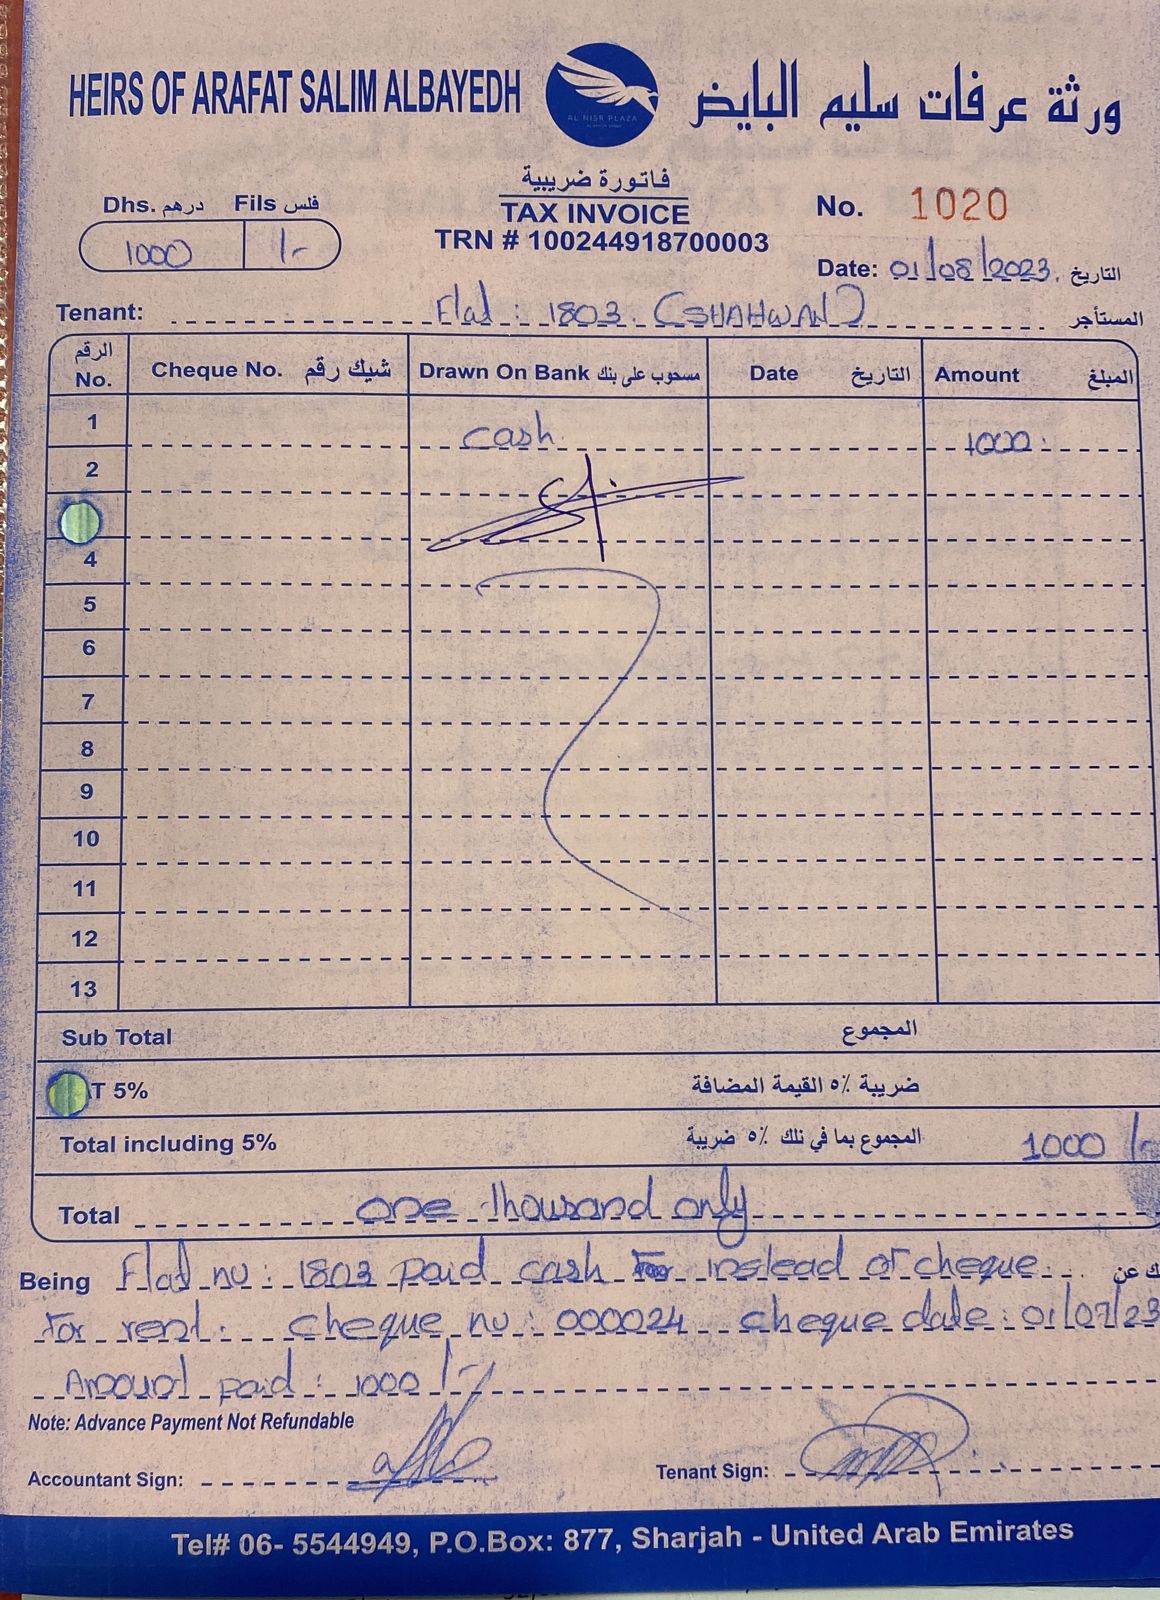 HEIRS OF ARAFAT SALIM ALBAYEDH
ورثة عرفات سليم البايض
AL NISR PLAZA
فاتورة ضريبية
TAX INVOICE
TRN # 100244918700003
Dhs. درهم Fils فلس
1000 /-
No. 1020
Date: 01/08/2023. التاريخ
Tenant: Flat : 1803. (SHAHWAN) المستأجر
الرقم No. Cheque No. شيك رقم Drawn On Bank مسحوب على بنك Date التاريخ Amount المبلغ
1 cash. 1000.
2
4
5
6
7
8
9
10
11
12
13
Sub Total المجموع
T 5% ضريبة ٥٪ القيمة المضافة
Total including 5% المجموع بما في ذلك ٥٪ ضريبة 1000 /-
Total one thousand only
Being Flat no : 1803 paid cash For instead of cheque ك عن
For rent. cheque no : 000024 cheque date : 01/07/23
Amount paid : 1000 /-
Note: Advance Payment Not Refundable
Accountant Sign: Tenant Sign:
Tel# 06- 5544949, P.O.Box: 877, Sharjah - United Arab Emirates